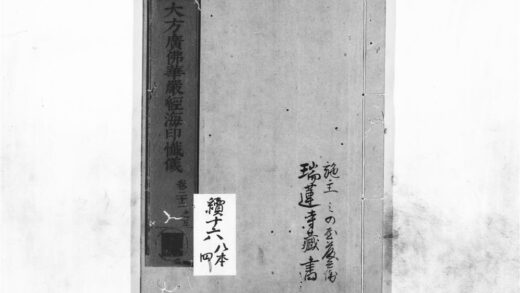 大方廣佛華嚴經海印懺儀
卷二十一之五
施主
瑞蓮寺藏書
續十六
八本
四